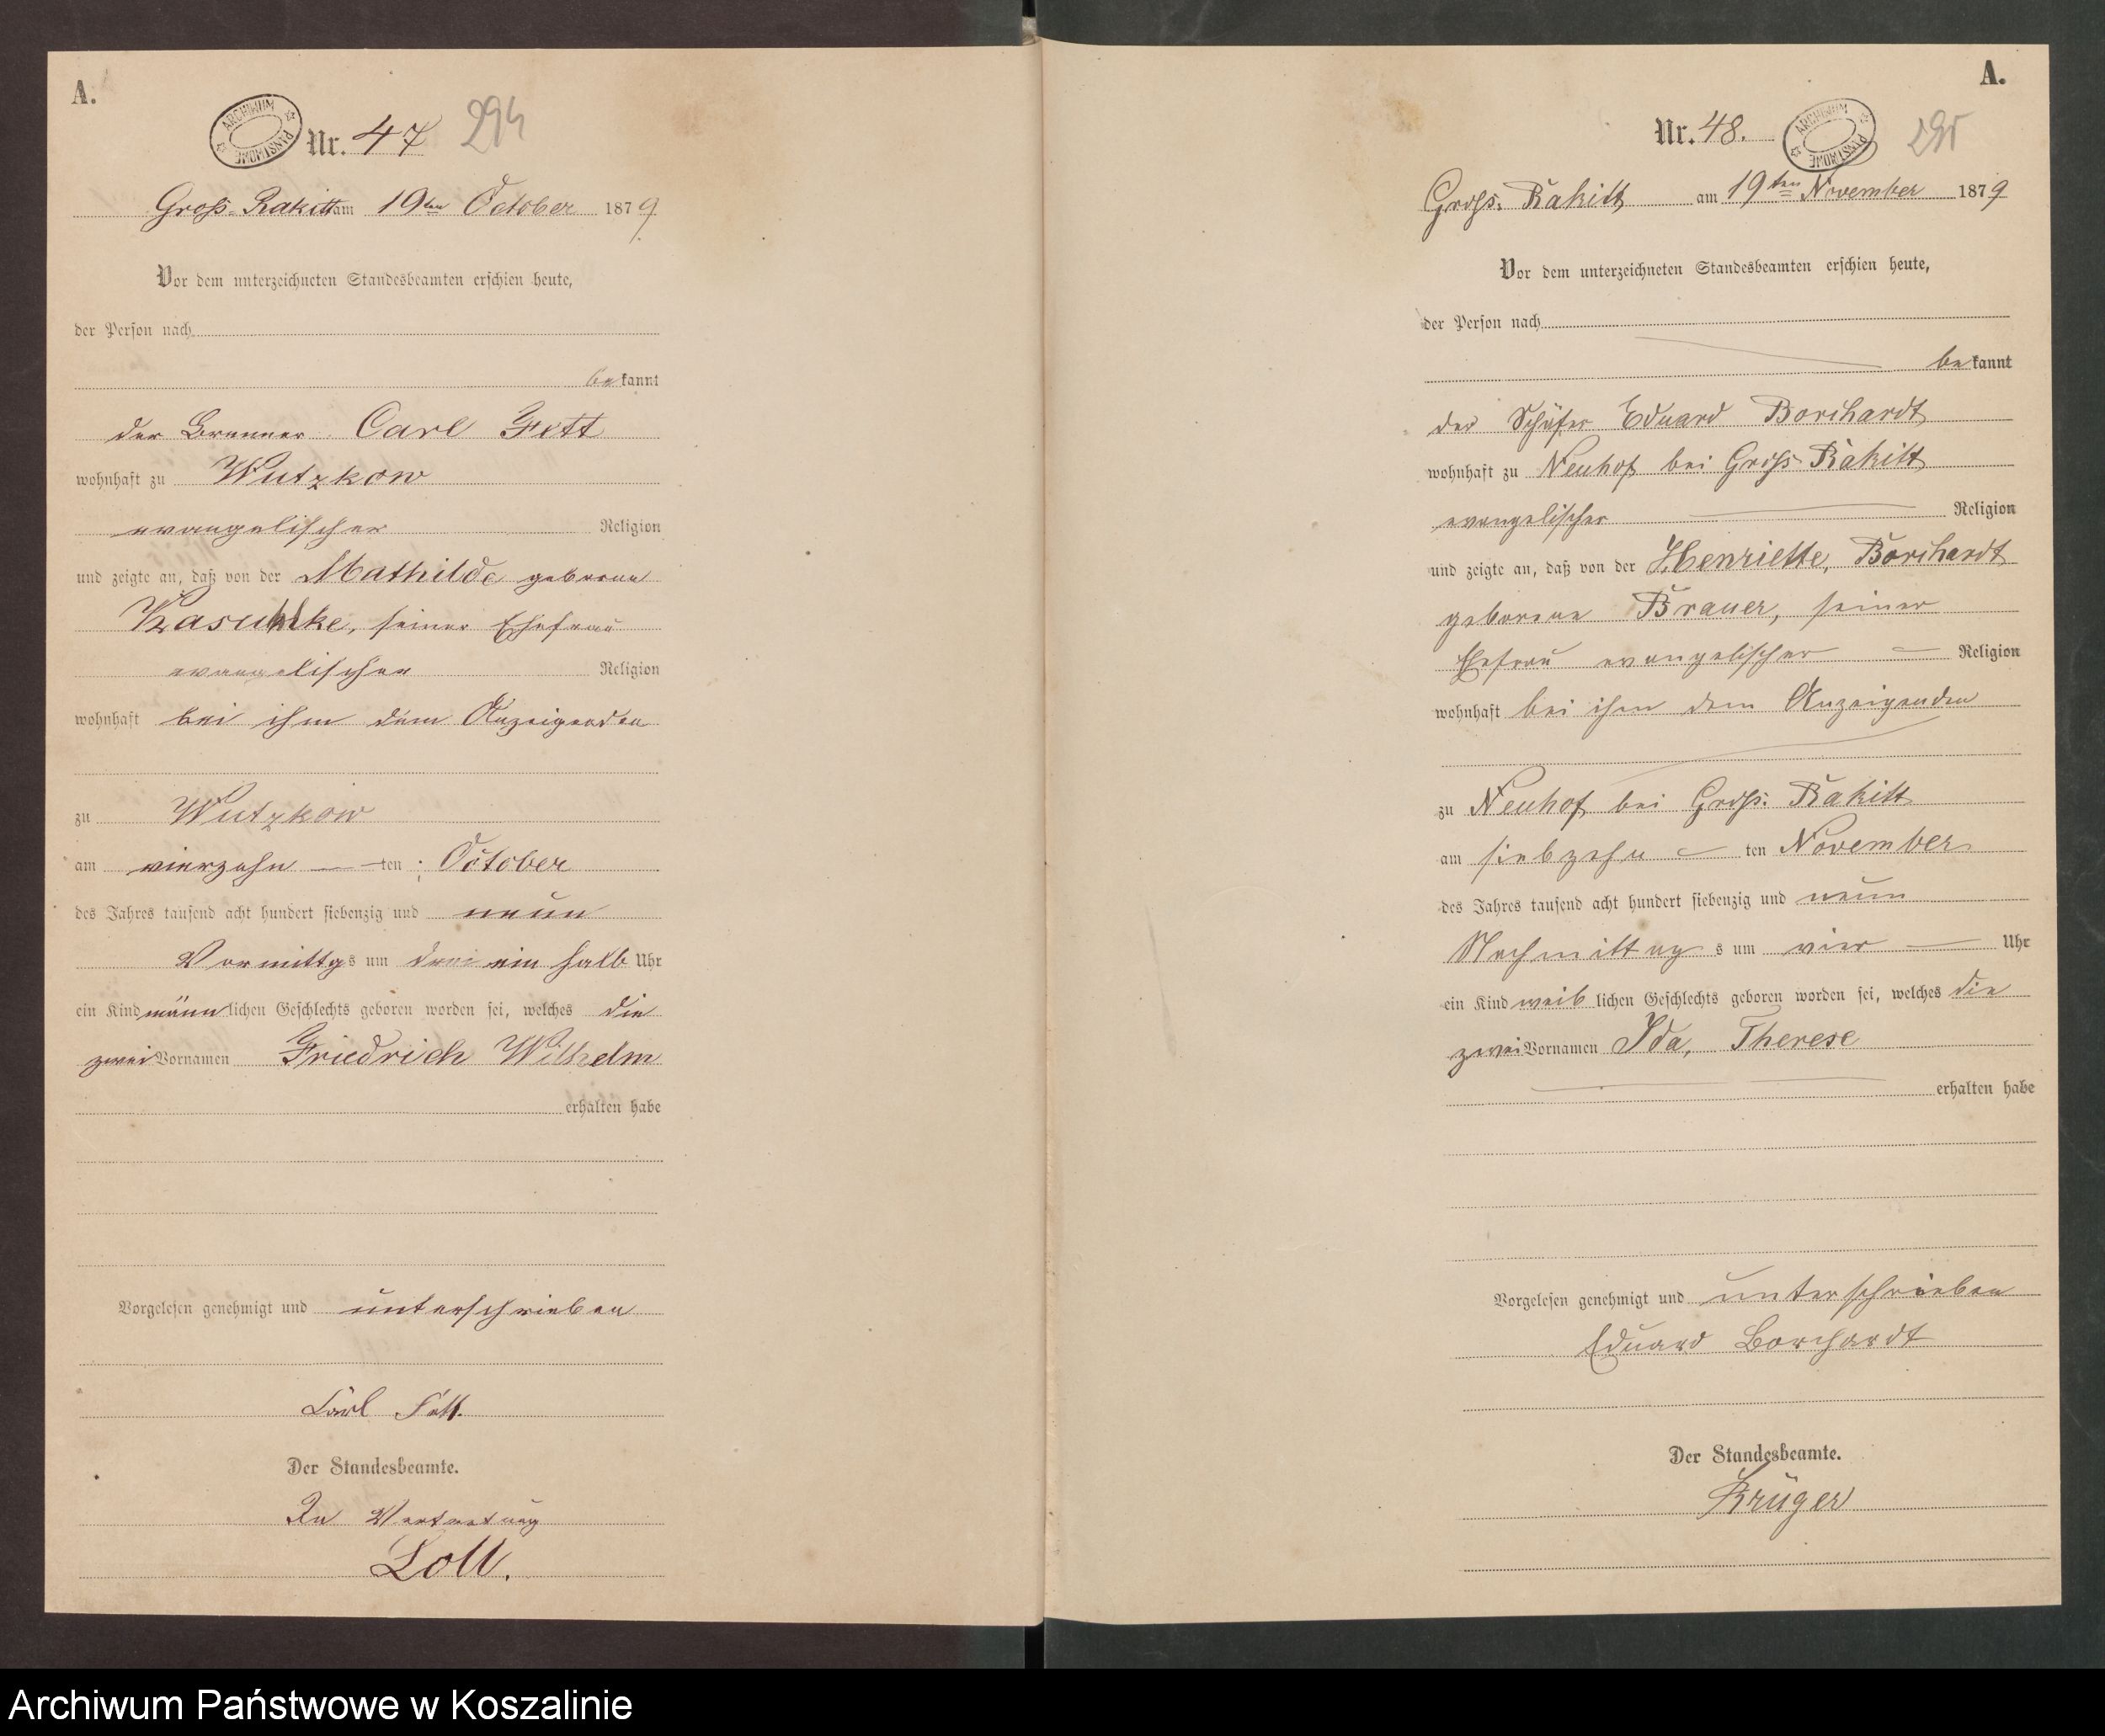 A.
ARCHIWUM PAŃSTWOWE
Nr. 47 294
Groß-Rakitt am 19ten October 1879
Vor dem unterzeichneten Standesbeamten erschien heute,
der Person nach
bekannt
der Brenner Carl Fett
wohnhaft zu Wutzkow
evangelischer Religion
und zeigte an, daß von der Mathilde geborene
seiner Ehefrau
evangelischer Religion
wohnhaft bei ihm dem Anzeigenden
zu Wutzkow
am vierzehn ten October
des Jahres tausend acht hundert siebenzig und neun
Vormittgs um drei ein halb Uhr
ein Kind männlichen Geschlechts geboren worden sei, welches die
zwei Vornamen Friedrich Wilhelm
erhalten habe
Vorgelesen genehmigt und unterschrieben
Carl Fett.
Der Standesbeamte.
In Vertretung
A.
Nr. 48.
ARCHIWUM PAŃSTWOWE
295
Gross-Rakitt am 19ten November 1879
Vor dem unterzeichneten Standesbeamten erschien heute,
der Person nach
bekannt
der Schäfer Eduard Borchardt
wohnhaft zu Neuhof bei Gross Rakitt
evangelischer Religion
und zeigte an, daß von der Henriette, Borchardt
geborene Brauer, seiner
Ehefrau evangelischer Religion
wohnhaft bei ihm dem Anzeigenden
zu Neuhof bei Gross Rakitt
am siebzehn ten November
des Jahres tausend acht hundert siebenzig und neun
Nachmittags um vier Uhr
ein Kind weiblichen Geschlechts geboren worden sei, welches die
zwei Vornamen Ida, Therese
erhalten habe
Vorgelesen genehmigt und unterschrieben
Eduard Borchardt
Der Standesbeamte.
Krüger
Archiwum Państwowe w Koszalinie